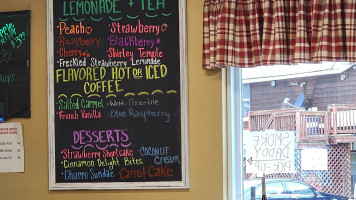 LEMONADE + TEA
Peach Strawberry
Raspberry Blackberry
Cherry Shirley Temple
Freckled Strawberry Lemonade
FLAVORED HOT OR ICED
COFFEE
Salted Carmel White Chocolate
French Vanilla Blue Raspberry
DESSERTS
Strawberry Shortcake COCONUT
Cinnamon Delight Bites CREAM
Churro Sundae Carrot Cake